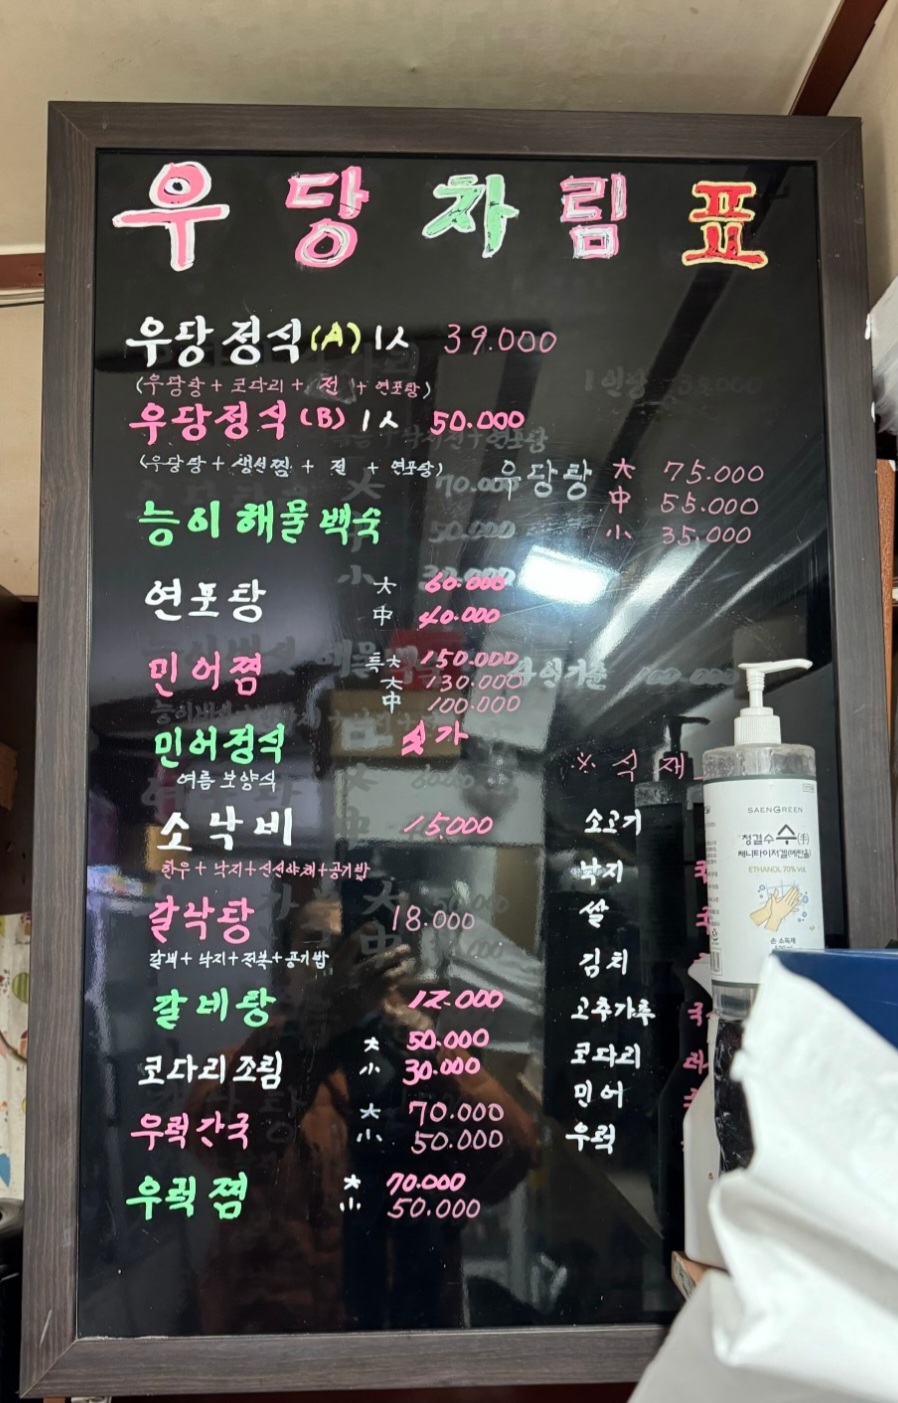 우당 차림표
우당정식(A) 1人 39.000
(우당탕 + 코다리 + 전 + 연포탕)
우당정식(B) 1人 50.000
(우당탕 + 생선찜 + 전 + 연포탕)
우당탕 大 75.000
中 55.000
小 35.000
능이해물백숙
연포탕 大 60.000
中 40.000
민어찜 특大 150.000
大 130.000
中 100.000
민어정식 싯가
여름 보양식
소낙비 15,000
한우 + 낙지 + 신선야채 + 공기밥
갈낙탕 18.000
갈비 + 낙지 + 전복 + 공기밥
갈비탕 12.000
코다리조림 大 50.000
小 30.000
우럭간국 大 70.000
小 50.000
우럭찜 大 70.000
小 50.000
※ 식재
소고기
낙지
쌀
김치
고추가루
코다리
민어
우럭
SAENGREEN
청결수수(手)
새니타이저겔(에탄올)
ETHANOL 70% Vol.
손 소독제